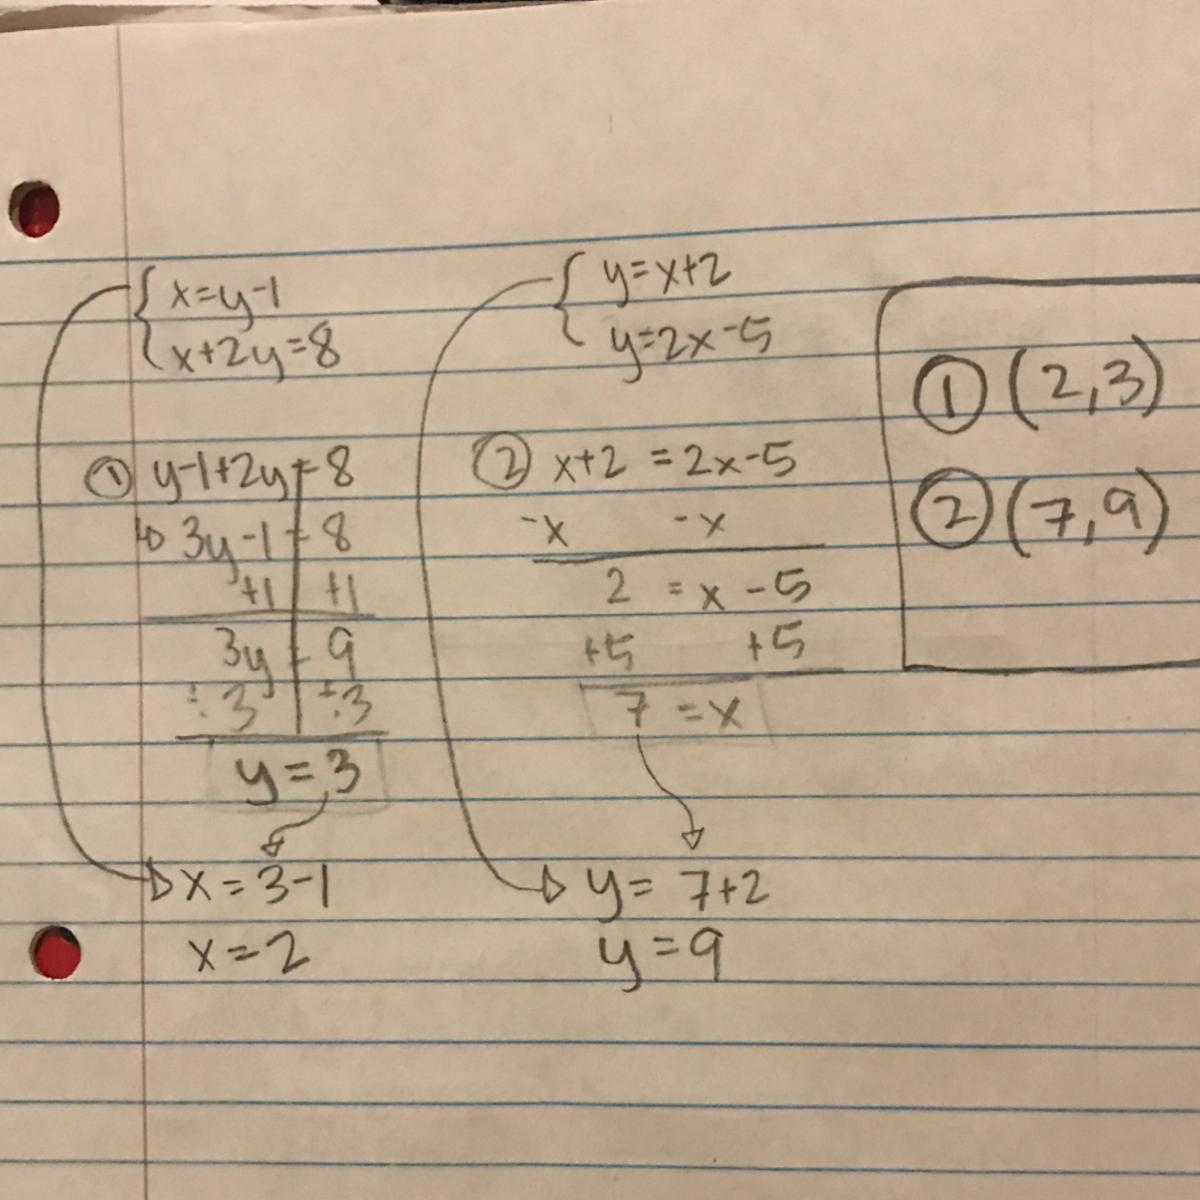 x=y-1
x+2y=8
① y-1+2y=8
3y-1=8
+1 +1
3y=9
÷3 ÷3
y=3
x=3-1
x=2
y=x+2
y=2x-5
② x+2=2x-5
-x -x
2=x-5
+5 +5
7=x
y=7+2
y=9
① (2,3)
② (7,9)